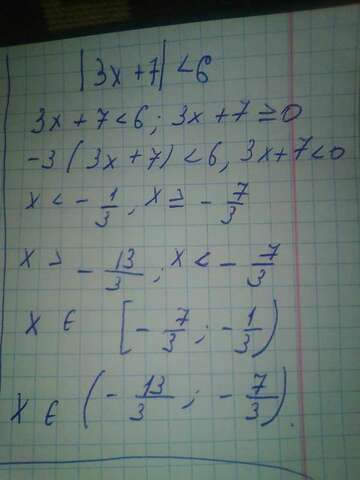 |3x+7|<6
3x+7<6; 3x+7≥0
-3(3x+7)<6, 3x+7<0
x<-1/3, x≥-7/3
x>-13/3; x<-7/3
x ∈ [-7/3; -1/3)
x ∈ (-13/3; -7/3).